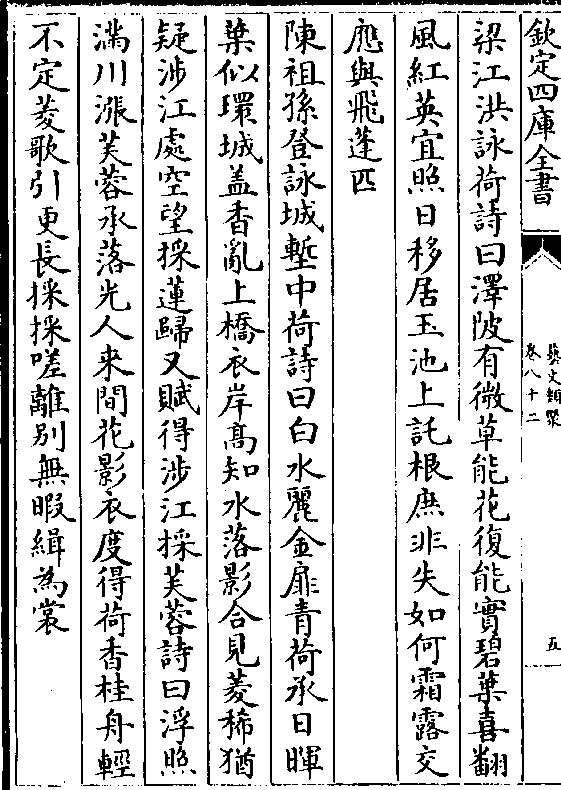 欽定四庫全書
藝文類聚
卷八十二
五
梁江洪詠荷詩曰澤陂有微草能花復能實碧葉喜翻
風紅英宜照日移居玉池上託根庶非失如何霜露交
應與飛蓬匹
陳祖孫登詠城塹中荷詩曰白水麗金扉青荷承日暉
葉似環城蓋香亂上橋衣岸高知水落影合見菱稀猶
疑涉江處空望採蓮歸又賦得涉江採芙蓉詩曰浮照
滿川漲芙蓉承落光人来間花影衣度得荷香桂舟輕
不定菱歌引更長採採嗟離别無暇緝為裳